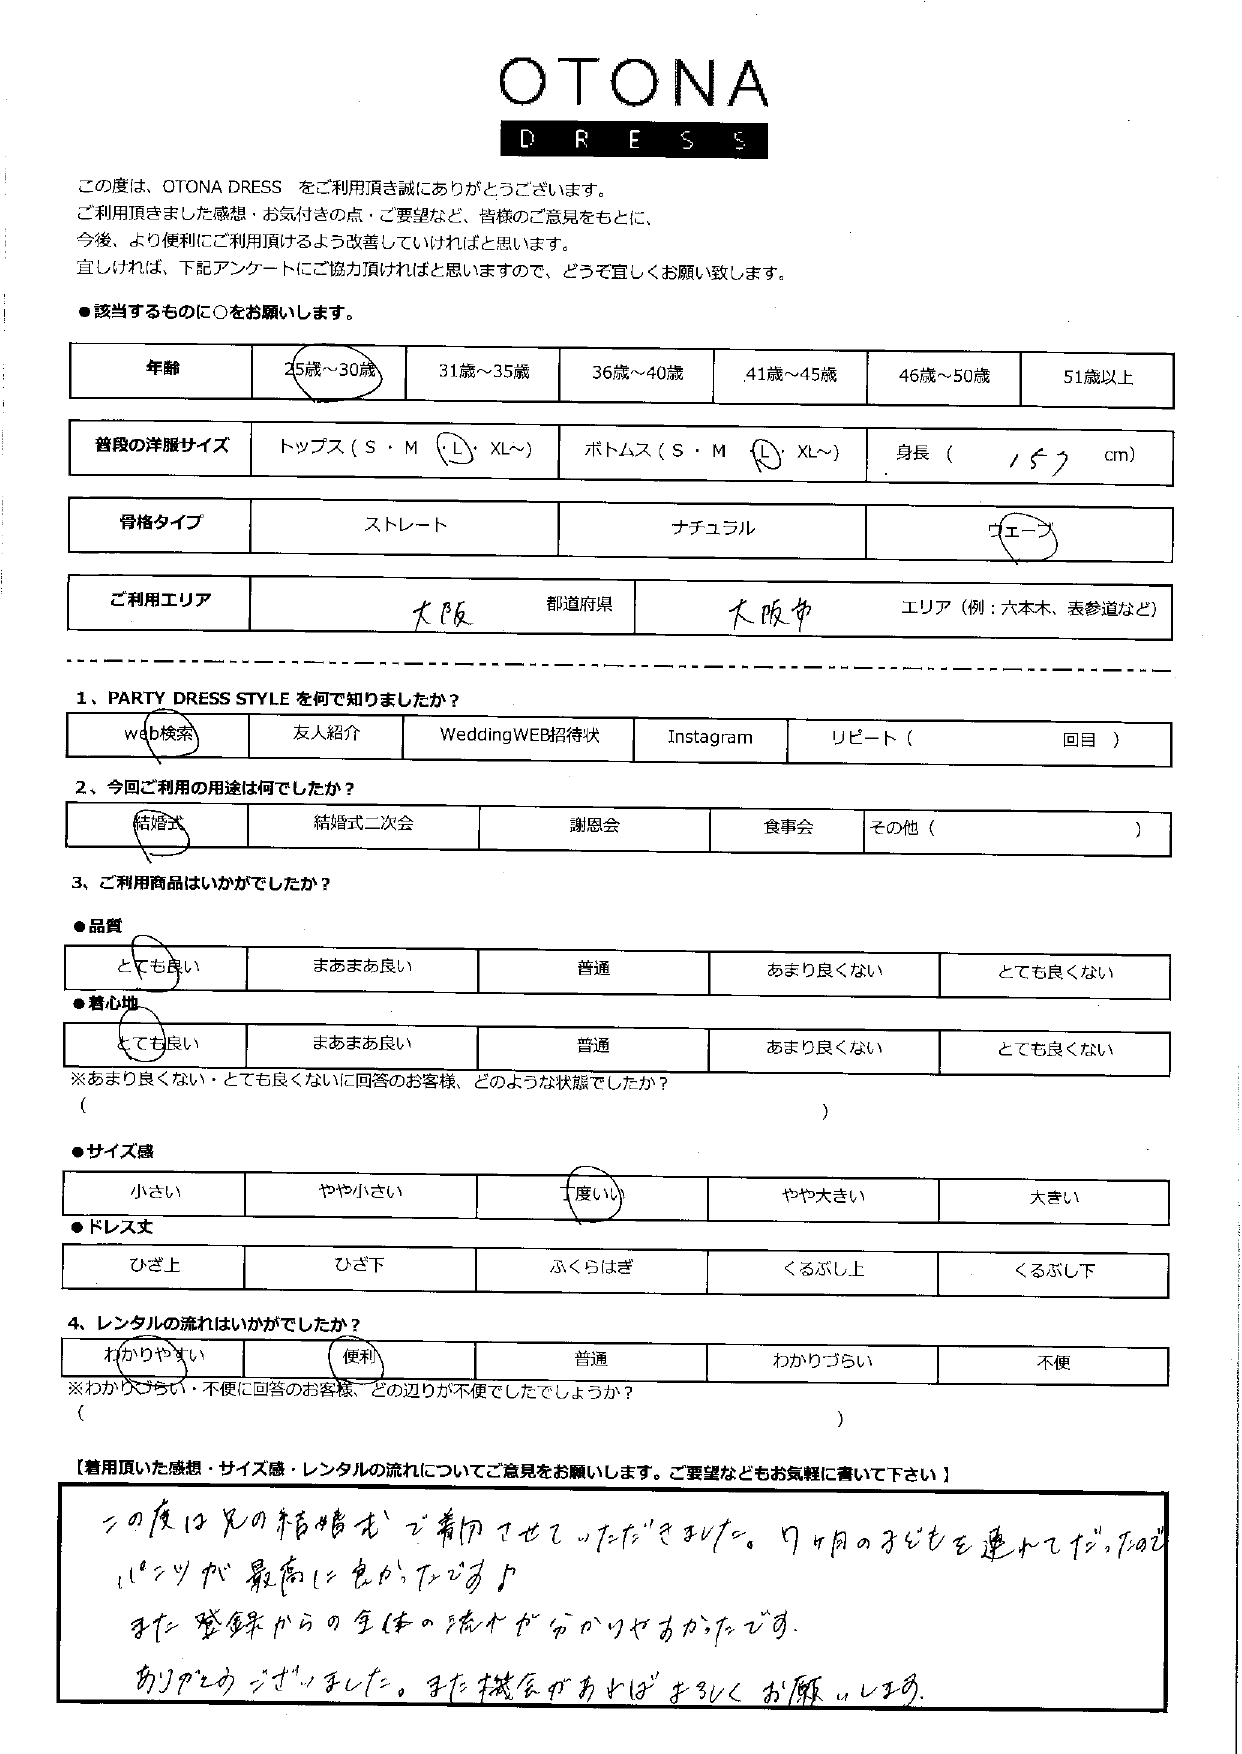 OTONA
DRESS
この度は、OTONA DRESS　をご利用頂き誠にありがとうございます。
ご利用頂きました感想・お気付きの点・ご要望など、皆様のご意見をもとに、
今後、より便利にご利用頂けるよう改善していければと思います。
宜しければ、下記アンケートにご協力頂ければと思いますので、どうぞ宜しくお願い致します。
●該当するものに○をお願いします。
年齢 25歳～30歳 31歳～35歳 36歳～40歳 41歳～45歳 46歳～50歳 51歳以上
普段の洋服サイズ トップス（ S ・ M ・ L ・ XL～） ボトムス（ S ・ M ・ L ・ XL～） 身長 （ 157 cm）
骨格タイプ ストレート ナチュラル ウェーブ
ご利用エリア 大阪 都道府県 大阪市 エリア（例：六本木、表参道など）
1、PARTY DRESS STYLE を何で知りましたか？
web検索 友人紹介 WeddingWEB招待状 Instagram リピート（ 回目 ）
2、今回ご利用の用途は何でしたか？
結婚式 結婚式二次会 謝恩会 食事会 その他（ ）
3、ご利用商品はいかがでしたか？
●品質
とても良い まあまあ良い 普通 あまり良くない とても良くない
●着心地
とても良い まあまあ良い 普通 あまり良くない とても良くない
※あまり良くない・とても良くないに回答のお客様、どのような状態でしたか？
（ ）
●サイズ感
小さい やや小さい 丁度いい やや大きい 大きい
●ドレス丈
ひざ上 ひざ下 ふくらはぎ くるぶし上 くるぶし下
4、レンタルの流れはいかがでしたか？
わかりやすい 便利 普通 わかりづらい 不便
※わかりづらい・不便に回答のお客様、どの辺りが不便でしたでしょうか？
（ ）
【着用頂いた感想・サイズ感・レンタルの流れについてご意見をお願いします。ご要望などもお気軽に書いて下さい 】
この度は兄の結婚式で着用させていただきました。7ヶ月の子どもを連れてだったので
パンツが最高に良かったです♪
また登録からの全体の流れが分かりやすかったです.
ありがとうございました。また機会があればよろしくお願いします.